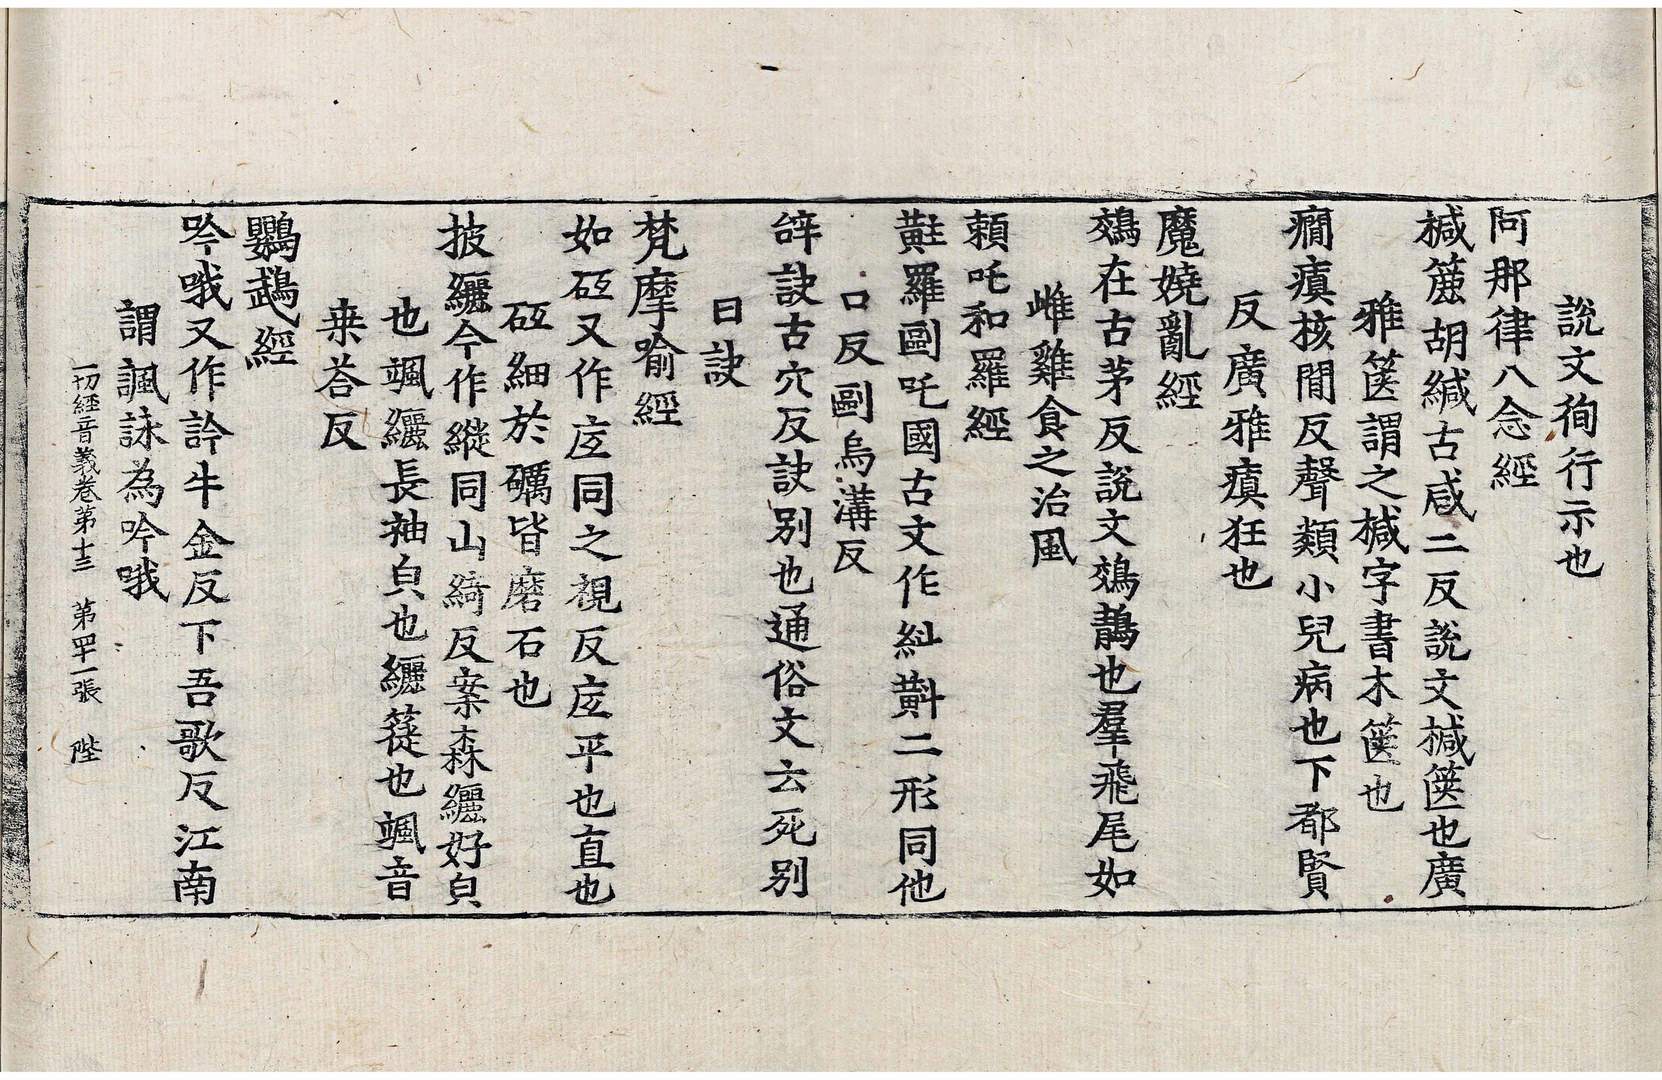 說文徇行示也
阿那律八念經
椷簏胡緘古咸二反說文椷篋也廣
雅篋謂之椷字書木篋也
癇瘨核閒反聲類小兒病也下都賢
反廣雅瘨狂也
魔嬈亂經
鵁在古茅反說文鵁鶄也羣飛尾如
雌雞食之治風
頼吒和羅經
黈羅剾吒國古文作䊵䵎二形同他
口反剾烏溝反
辝訣古穴反訣别也通俗文云死别
曰訣
梵摩喻經
如砥又作㡳同之視反㡳平也直也
砥細於礪皆磨石也
披纚今作縰同山綺反案森纚好皃
也颯纚長袖皃也纚簁也颯音
桒荅反
鸚鵡經
吟哦又作訡牛金反下吾歌反江南
謂諷詠為吟哦
一切經音義卷第十三 第罕一張 陛